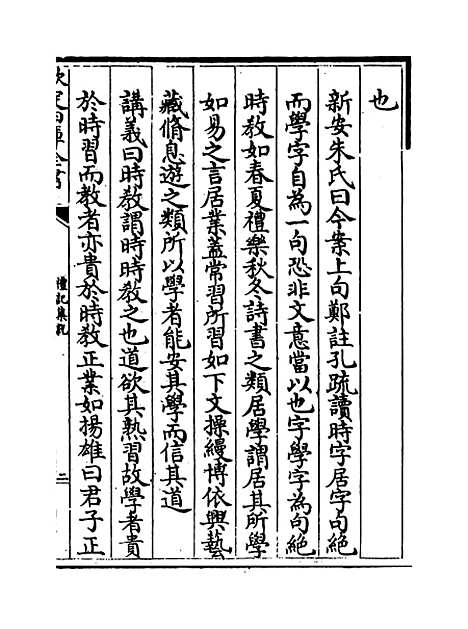 也
新安朱氏曰今案上句鄭註孔疏讀時字居字句絶
而學字自為一句恐非文意當以也字學字為句絶
時教如春夏禮樂秋冬詩書之類居學謂居其所學
如易之言居業蓋常習所習如下文操縵博依興藝
藏脩息遊之類所以學者能安其學而信其道
講義曰時教謂時時教之也道欲其熟習故學者貴
於時習而教者亦貴於時教正業如揚雄曰君子正
欽定四庫全書
禮記集說
二